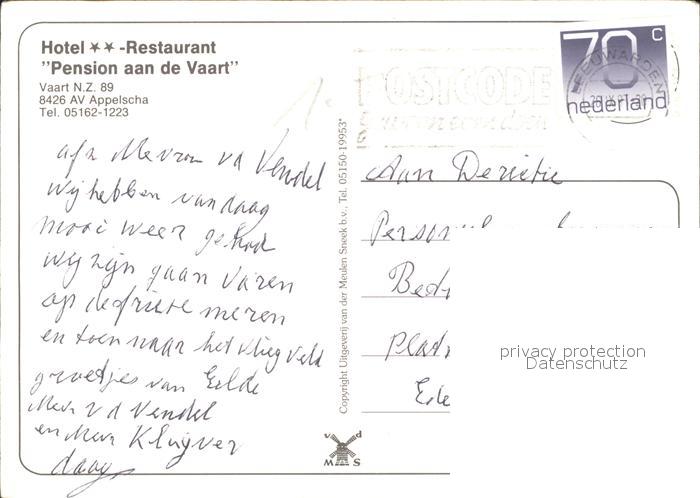 Hotel ★★-Restaurant
"Pension aan de Vaart"
Vaart N.Z. 89
8426 AV Appelscha
Tel. 05162-1223
70 c
nederland
LEEUWARDEN
POSTCODE
afz Mevrou vd Vendel
wij hebben vandaag
mooi weer gehad
wij zijn gaan varen
op de friese meren
en toen naar het vliegveld
groetjes van Eelde
Mevr v d Vendel
en Mevr Kluyver
daag
Copyright Uitgeverij van der Meulen Sneek b.v., Tel. 05150-19953*
v d
M S
Aan De
Perso
Bed
Plat
privacy protection
Datenschutz